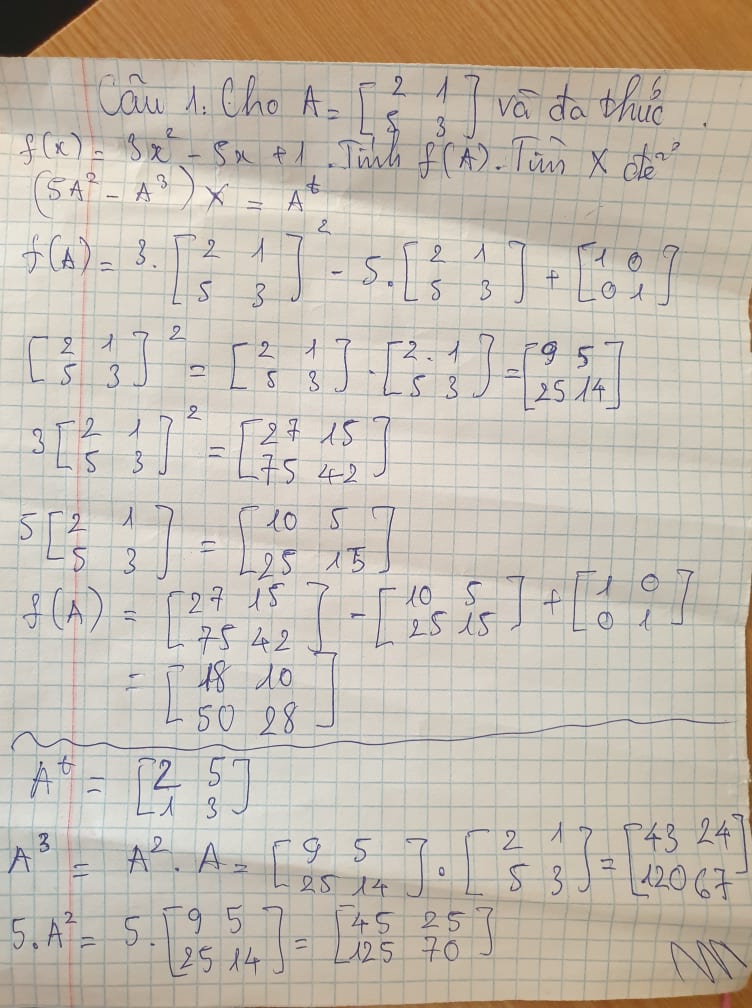 Câu 1. Cho A = [2 1; 5 3] và đa thức .
f(x) = 3x² - 5x + 1. Tính f(A). Tìm X để
(5A² - A³) X = Aᵗ
f(A) = 3. [2 1; 5 3]² - 5. [2 1; 5 3] + [1 0; 0 1]
[2 1; 5 3]² = [2 1; 5 3] . [2 1; 5 3] = [9 5; 25 14]
3 [2 1; 5 3]² = [27 15; 75 42]
5 [2 1; 5 3] = [10 5; 25 15]
f(A) = [27 15; 75 42] - [10 5; 25 15] + [1 0; 0 1]
= [18 10; 50 28]
Aᵗ = [2 5; 1 3]
A³ = A² . A = [9 5; 25 14] . [2 1; 5 3] = [43 24; 120 67]
5.A² = 5. [9 5; 25 14] = [45 25; 125 70]